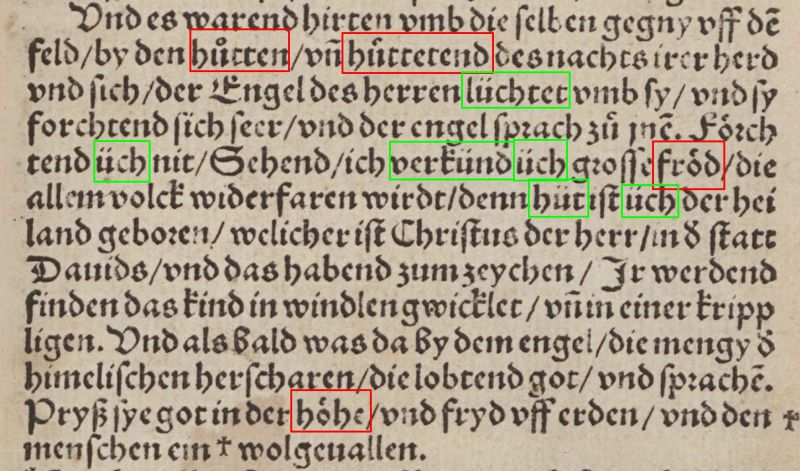 Vnd es warend hirten vmb die selben gegny vff dē
feld/by den huͤtten/vn̄ huͤttetend des nachts irer herd
vnd sich/der Engel des herren lüchtet vmb sy/vnd sy
forchtend sich seer/vnd der engel sprach zuͦ jnē. Foͤrch
tend üch nit/Sehend/ich verkünd üch grosse froͤd/die
allem volck widerfaren wirdt/denn hüt ist üch der hei
land geboren/welicher ist Christus der herr/in ð statt
Dauids/vnd das habend zum zeychen/Jr werdend
finden das kind in windlen gwicklet/vn̄ in einer kripp
ligen. Vnd als bald was da by dem engel/die mengy ð
himelischen herscharen/die lobtend got/vnd sprachē.
Pryß sye got in der hoͤhe/vnd fryd vff erden/vnd den ✝
menschen ein ✝ wolgeuallen.